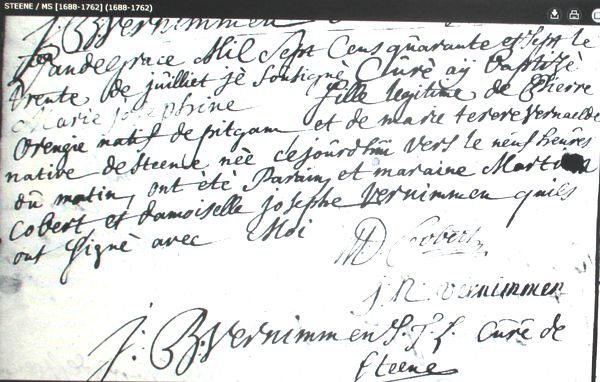 STEENE / MS [1688-1762] (1688-1762)
J: B: Vernimmen
L'an de grace Mil Sept Cens quarante et Sept le
trente de juilliet jè Soûsignè Cûré aÿ baptizè
Marie josephine fille legitime de Pierre
natif de pitgam et de marie terere
native de Steene née ce jôurd'hui vers le neuf heures
dû matin, ont été Parain et maraine
Cobert et damoiselle josephe Vernimmen qui
ont Signè avec Moi
MD Coobert
j N vernimmen
j: B: Vernimmen S. T. L. Cûré de
Steene